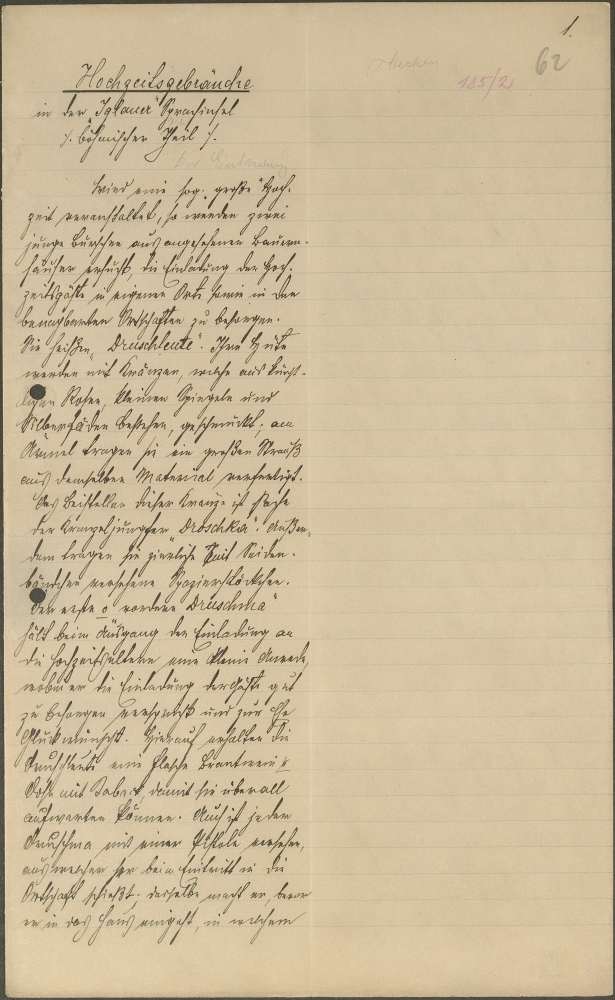 1.
62
185/2
Hochzeitsgebräuche
in der "Iglauer" Sprachinsel
/. böhmischer Theil /.
Die Einladung
Wird eine sog. "große" Hoch-
zeit veranstaltet, so werden zwei
junge Burschen aus angesehenen Bauern-
häuser ersucht, die Einladung der Hoch-
zeitsgäste in eigenen Orte sowie in den
benachbarten Ortschaften zu besorgen.
Sie heißen "Druschleute". Ihre Hüte
werden mit Kränzen, welche aus künst-
lichen Rosen, kleinen Spiegeln und
Silberfäden bestehen, geschmückt; am
Ärmel tragen sie ein großen Strauß
aus demselben Material verfertigt.
Das Beistellen dieser Kränze ist Sache
der Kranzeljungfer "Droschka". Außer-
dem tragen sie zierliche mit Seiden-
bändchen versehene Spazierstöckchen.
Der erste o vordere "Druschma"
hält beim Ausgang der Einladung an
die Hochzeitseltern eine kleine Anrede,
wobei er die Einladung der Gäste gut
zu besorgen verspricht und zur Ehe
Glück wünscht. Hierauf erhalten die
Druschleute eine Flasche Brantwein u
Dose mit Tabak, damit sie überall
aufwarten können. Auch ist jeder
Druschma mit einer Pistole versehen,
aus welcher er beim Eintritt in die
Ortschaft schießt; dasselbe macht er, bevor
er in das Haus eingeht, in welchem